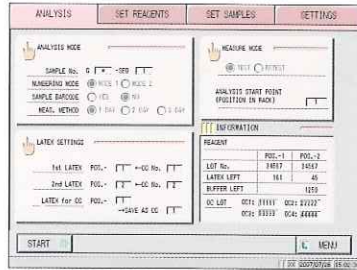 ANALYSIS SET REAGENTS SET SAMPLES SETTINGS
ANALYSIS MODE
SAMPLE No. G * -SEQ 1
NUMBERING MODE MODE 1 MODE 2
SAMPLE BARCODE YES NO
MEAS. METHOD 1 DAY 2 DAY 3 DAY
LATEX SETTINGS
1st LATEX POS.- 1 ←CC No. 1
2nd LATEX POS.- 2 ←CC No. 2
LATEX for QC POS.- 1
→SAVE AS CC 1
MEASURE MODE
TEST RETEST
ANALYSIS START POINT
(POSITION IN RACK) 1
INFORMATION
REAGENT
POS.-1 POS.-2
LOT No. 34567 34567
LATEX LEFT 161 45
BUFFER LEFT 1250
QC LOT QC1: 11111 QC2: 22222
QC3: 33333 QC4: 44444
START MENU
2007/07/26